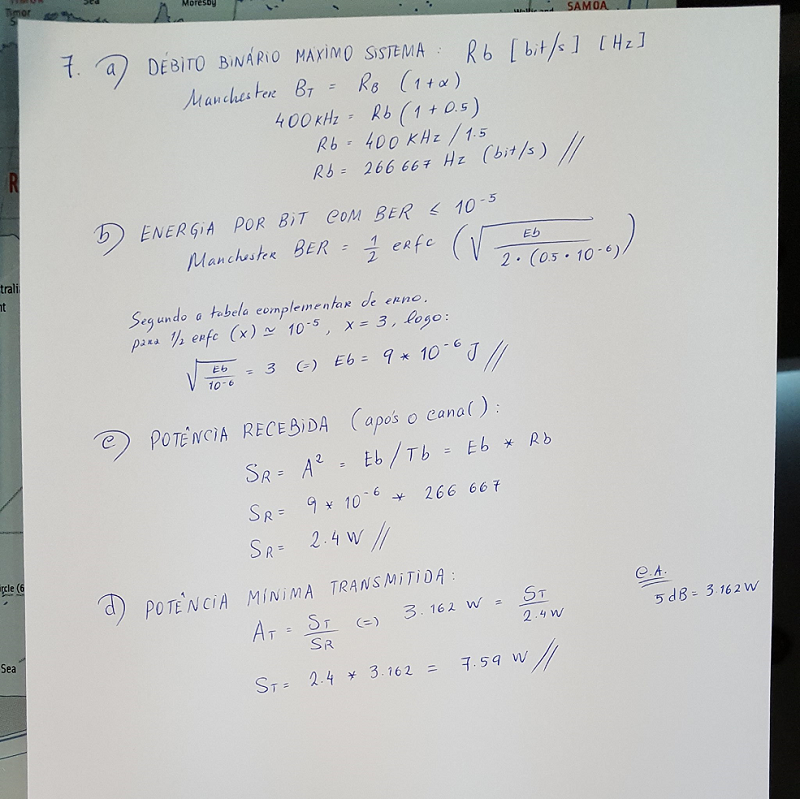 Moresby
SAMOA
Timor
Sea
7. a) DÉBITO BINÁRIO MÁXIMO SISTEMA: Rb [bit/s] [Hz]
Manchester BT = RB (1+α)
400KHz = Rb (1 + 0.5)
Rb = 400 KHz / 1.5
Rb = 266 667 Hz (bit/s) //
b) ENERGIA POR BIT COM BER ≤ 10^-5
Manchester BER = 1/2 erfc (√(Eb / 2·(0.5·10^-6)))
Segundo a tabela complementar de erro.
para 1/2 erfc (x) ≃ 10^-5, x = 3, logo:
√(Eb / 10^-6) = 3 (=) Eb = 9 * 10^-6 J //
c) POTÊNCIA RECEBIDA (após o canal):
SR = A^2 = Eb / Tb = Eb * Rb
SR = 9 * 10^-6 * 266 667
SR = 2.4 W //
d) POTÊNCIA MÍNIMA TRANSMITIDA:
AT = ST / SR (=) 3.162 W = ST / 2.4W
ST = 2.4 * 3.162 = 7.59 W //
C.A.
5 dB = 3.162 W
Sea